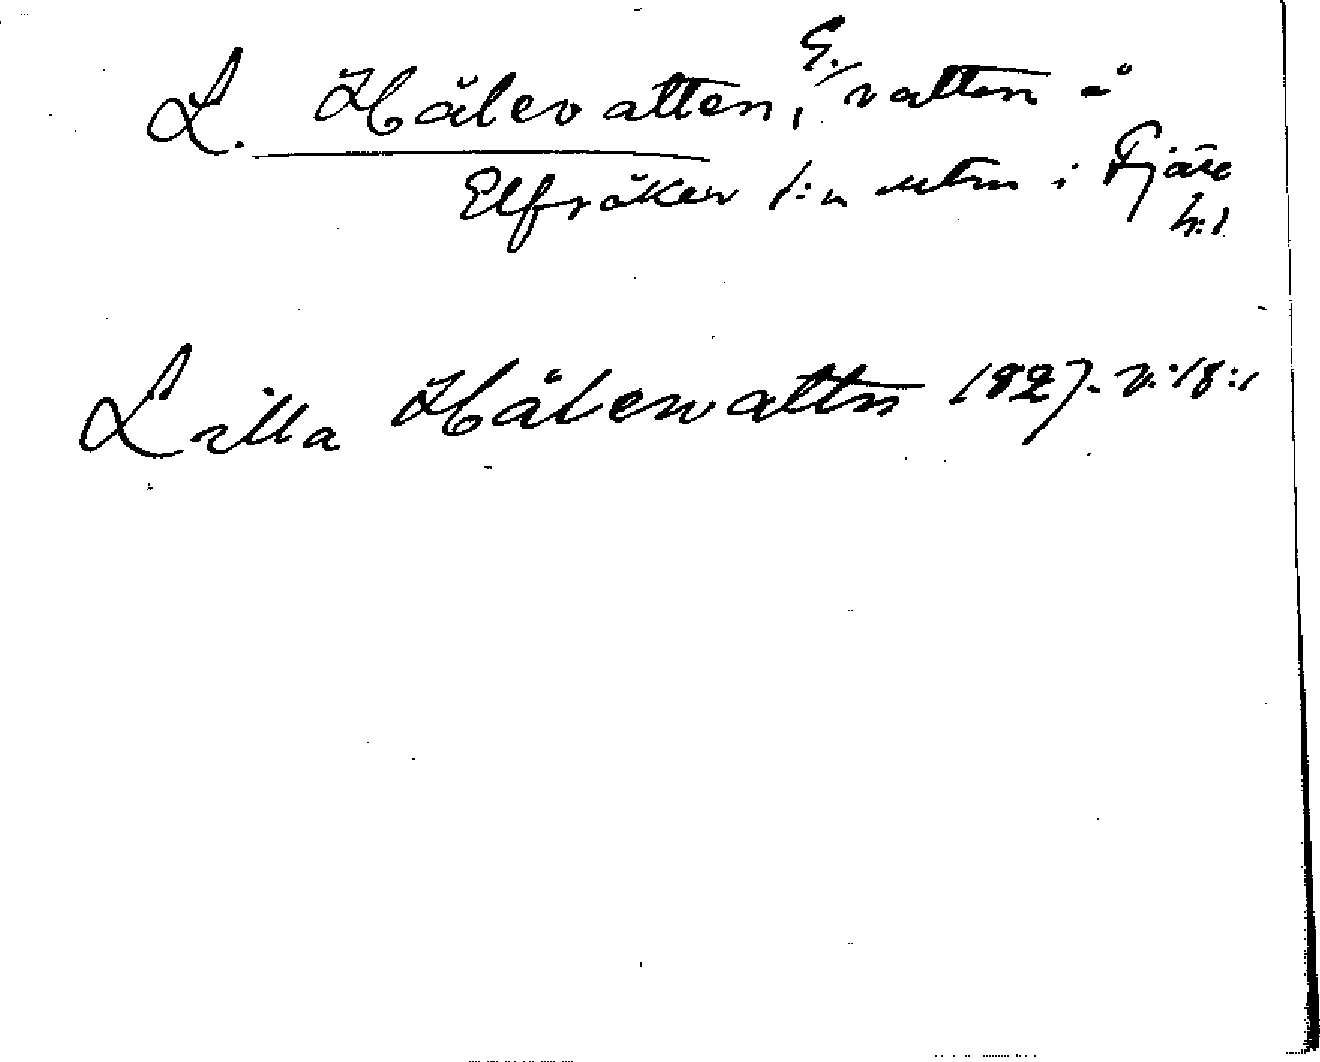 L. Hålevatten, G. vatten å
Elfsåker 1:n utm i Fjäre
h:d
Lilla Hålewattn 1827. V:18:1